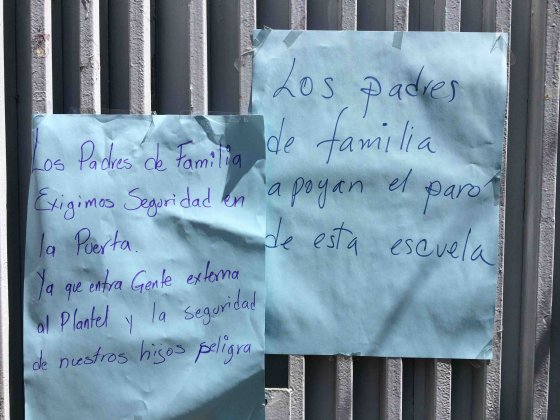 Los Padres de Familia
Exigimos Seguridad en
la Puerta.
Ya que entra Gente externa
al Plantel y la seguridad
de nuestros hijos peligra
Los padres
de familia
apoyan el paro
de esta escuela